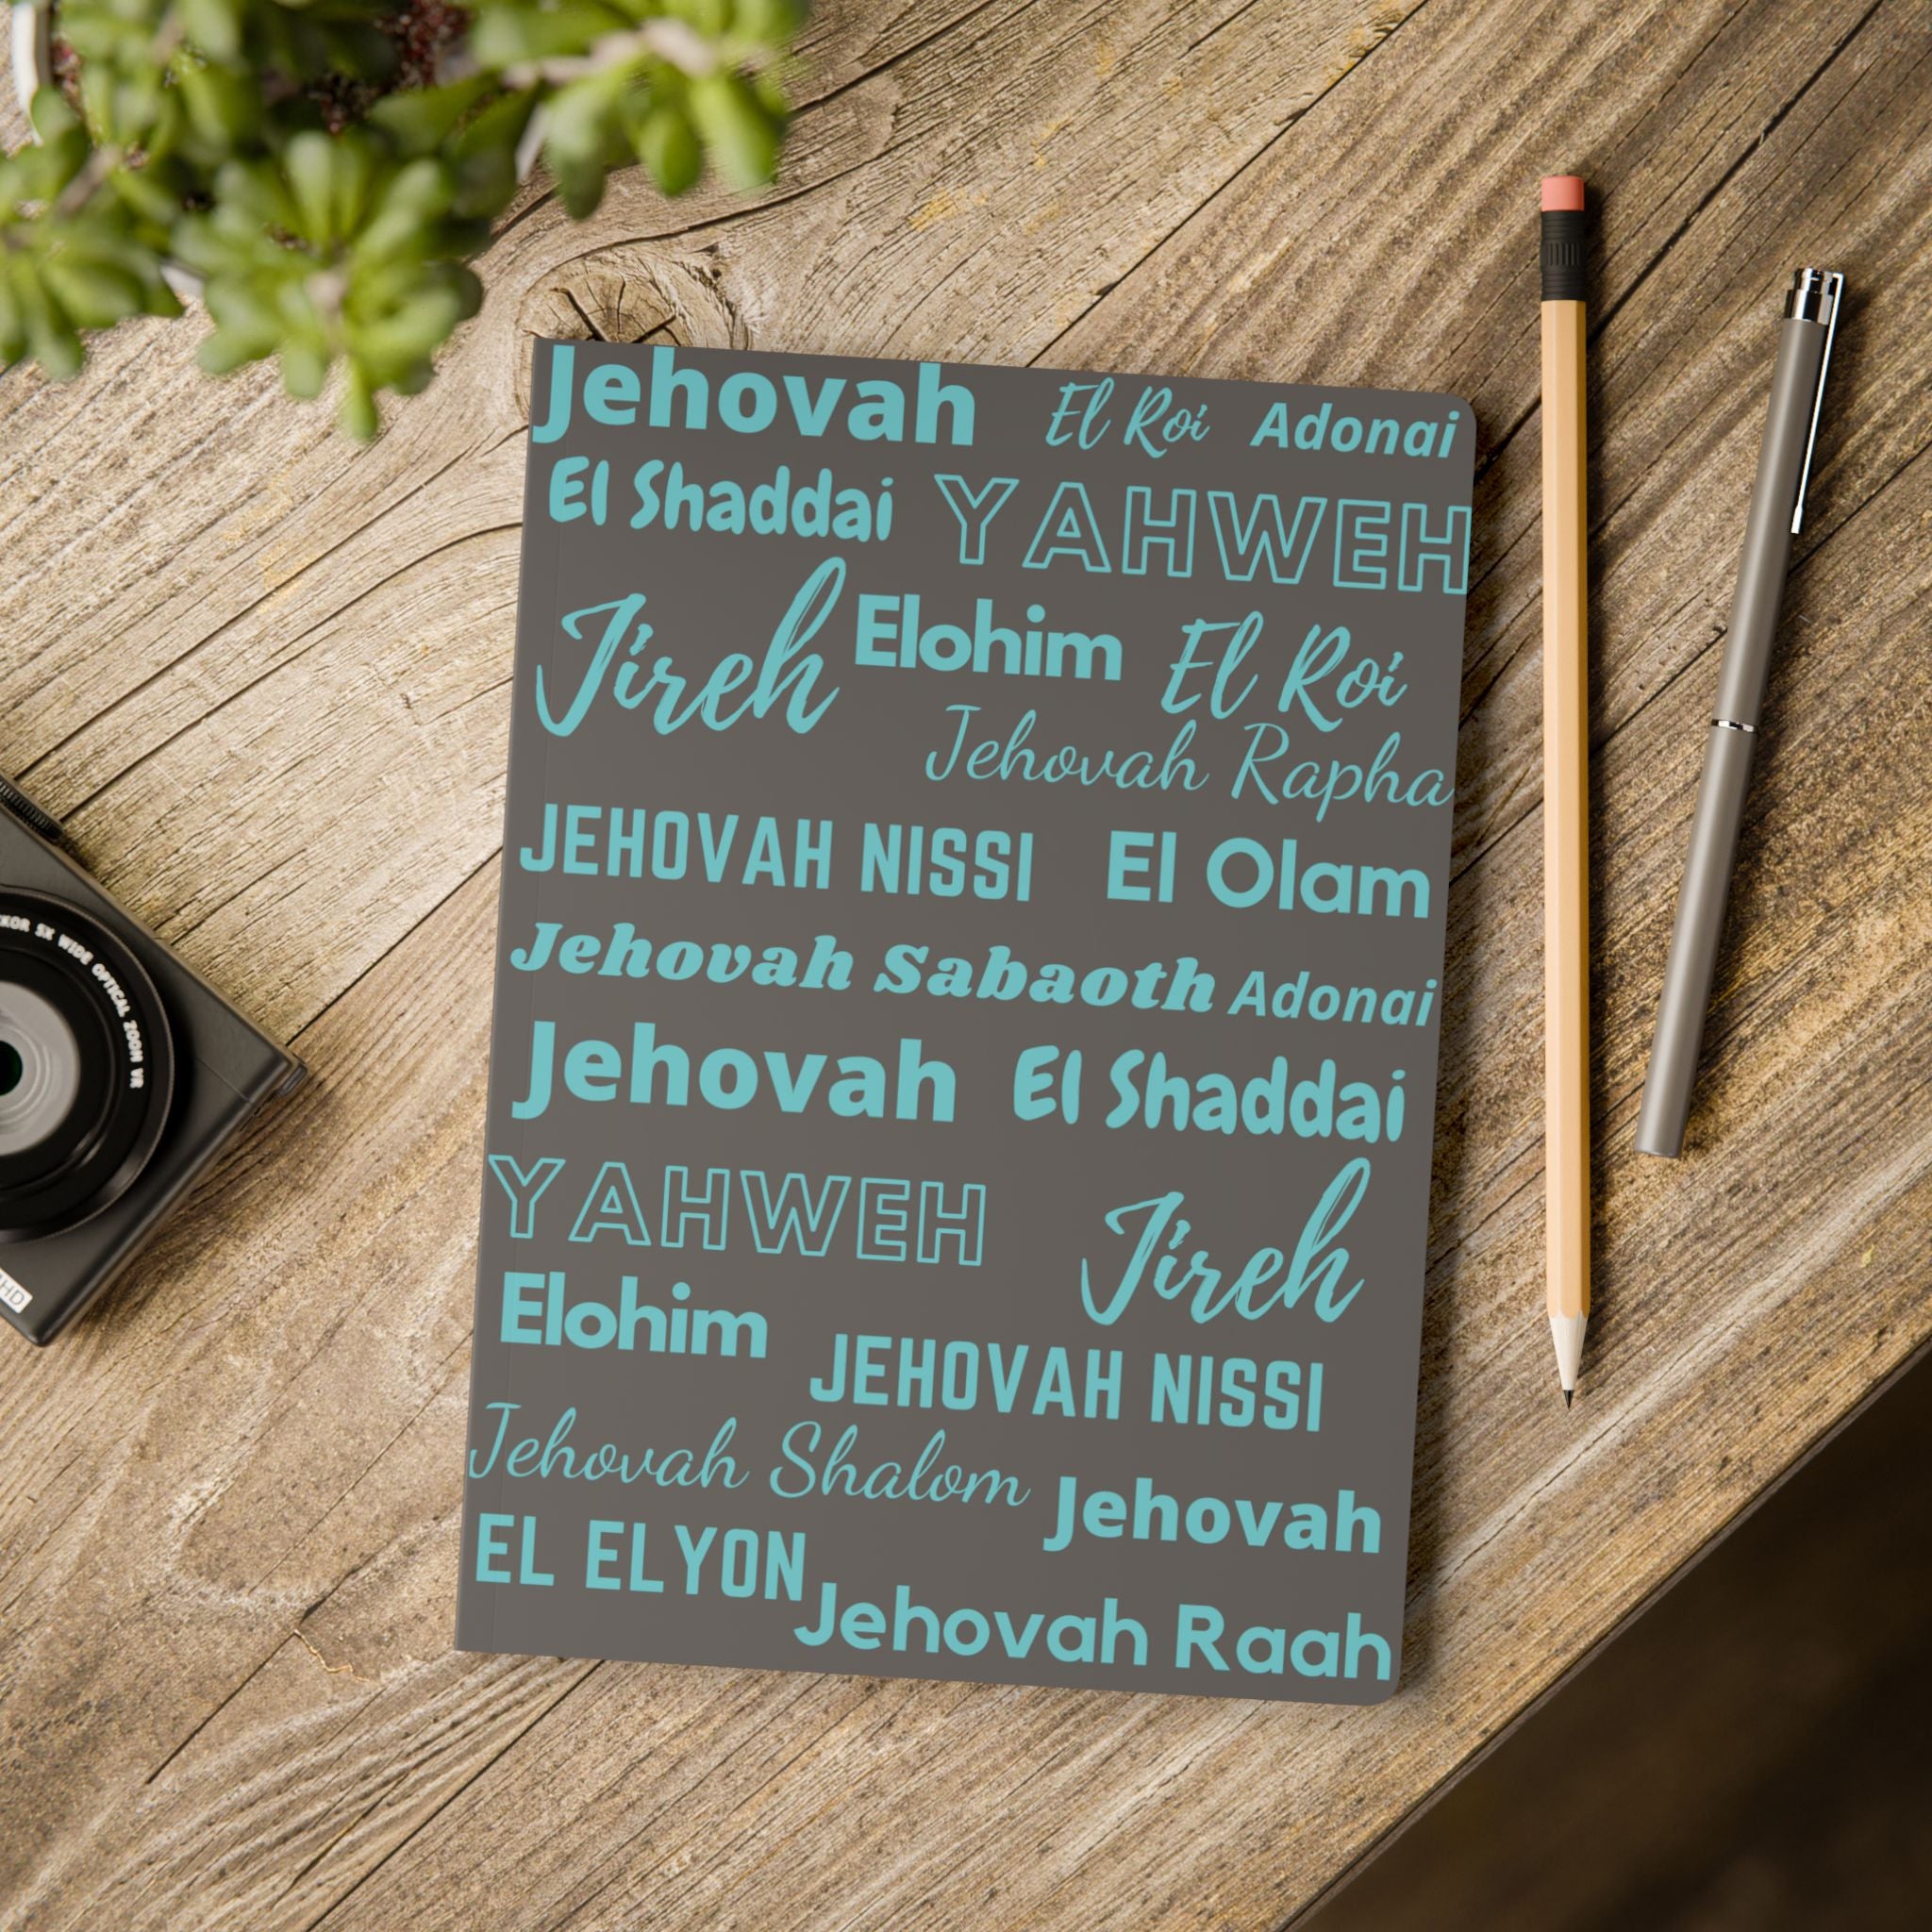 Jehovah El Roi Adonai
El Shaddai YAHWEH
Jireh Elohim El Roi
Jehovah Rapha
JEHOVAH NISSI El Olam
Jehovah Sabaoth Adonai
Jehovah El Shaddai
YAHWEH Jireh
Elohim JEHOVAH NISSI
Jehovah Shalom Jehovah
EL ELYON Jehovah Raah
5X WIDE OPTICAL ZOOM VR
HD